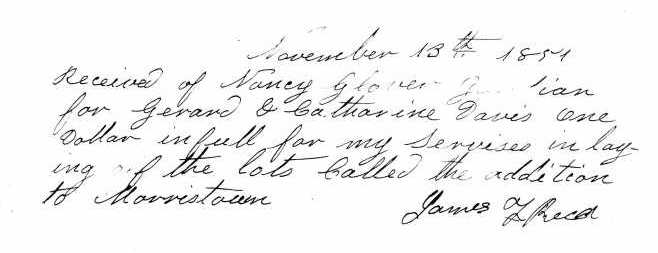 November 13th 1851
Received of Nancy Glover
for Gerard & Catharine Davis one
Dollar in full for my Servises in lay-
ing of the lots Called the addition
to Morristown
James Reed